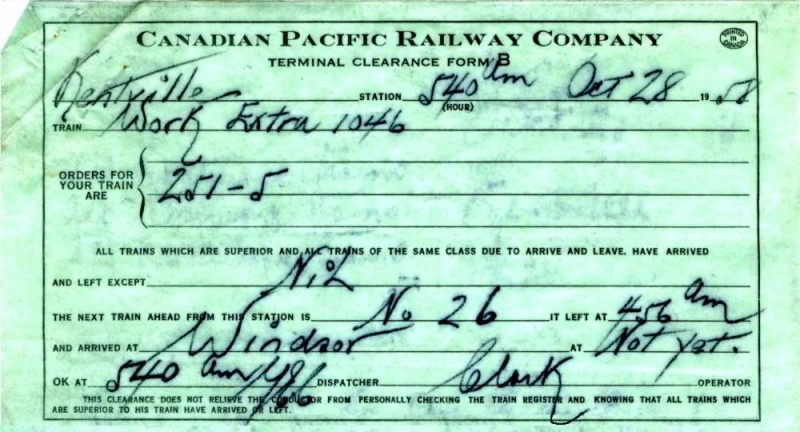 CANADIAN PACIFIC RAILWAY COMPANY
PRINTED IN CANADA
TERMINAL CLEARANCE FORM B
Kentville STATION 540 am Oct 28 1958
(HOUR)
TRAIN Work Extra 1046
ORDERS FOR
YOUR TRAIN
ARE
251-5
ALL TRAINS WHICH ARE SUPERIOR AND ALL TRAINS OF THE SAME CLASS DUE TO ARRIVE AND LEAVE, HAVE ARRIVED
AND LEFT EXCEPT Nil
THE NEXT TRAIN AHEAD FROM THIS STATION IS No 26 IT LEFT AT 456 am
AND ARRIVED AT Windsor AT Not yet.
OK AT 540 am DISPATCHER Clark OPERATOR
THIS CLEARANCE DOES NOT RELIEVE THE CONDUCTOR FROM PERSONALLY CHECKING THE TRAIN REGISTER AND KNOWING THAT ALL TRAINS WHICH
ARE SUPERIOR TO HIS TRAIN HAVE ARRIVED OR LEFT.